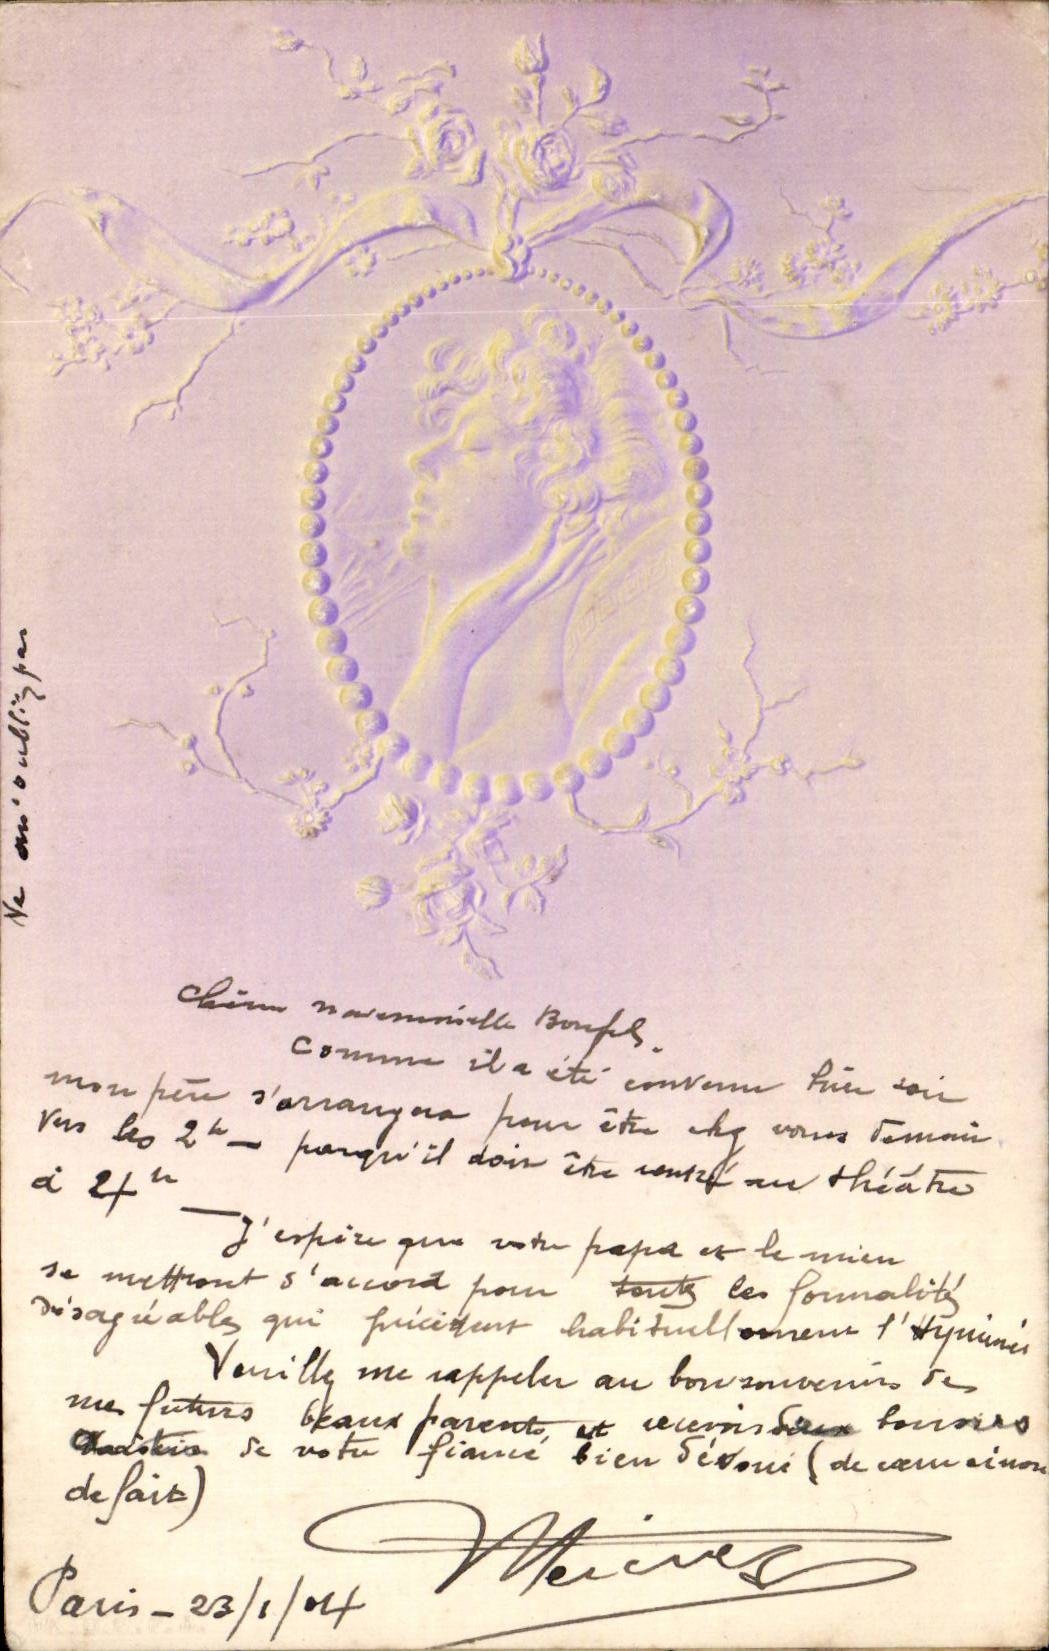 Chère mademoiselle
Comme il a été convenu hier soir
mon père s'arrangera pour être chez vous demain
vers les 2h — parqu'il doit être rentré au théâtre
à 4h —
J'espère que votre papa et le mien
se mettront d'accord pour toutes les formalités
désagréables qui précèdent habituellement l'Hyménée
Veuillez me rappeler au bon souvenir de
mes futurs beaux parents, et recevoir deux
de votre fiancé bien dévoué (de cœur sinon
de fait)
Paris - 23/1/04
Ne m'oubliez pas